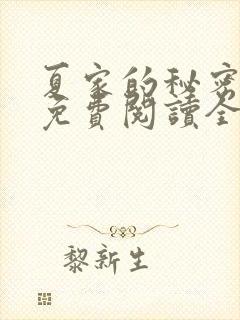 夏家的秘密
免費閱讀全
黎新生